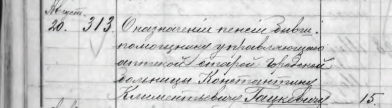 Август.
20. 313 О назначеніи пенсіи бывш.
помощнику управляющаго
аптекою старой Городской
больницы Константину
Климентьевичу Гацкевичу 15.